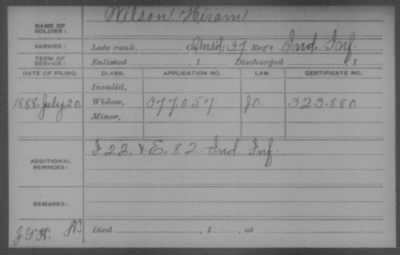 Wilson Hiram
NAME OF SOLDIER:
SERVICE: Late rank, Unsd. 37 Reg't Ind. Inf.
TERM OF SERVICE: Enlisted , 1 Discharged , 1
DATE OF FILING. CLASS. APPLICATION NO. LAW. CERTIFICATE NO.
Invalid,
1888. July 20 Widow, 377057 JO 323.880
Minor,
ADDITIONAL SERVICES: I 22. & E. 82 Ind Inf.
REMARKS:
Died , 1 , at